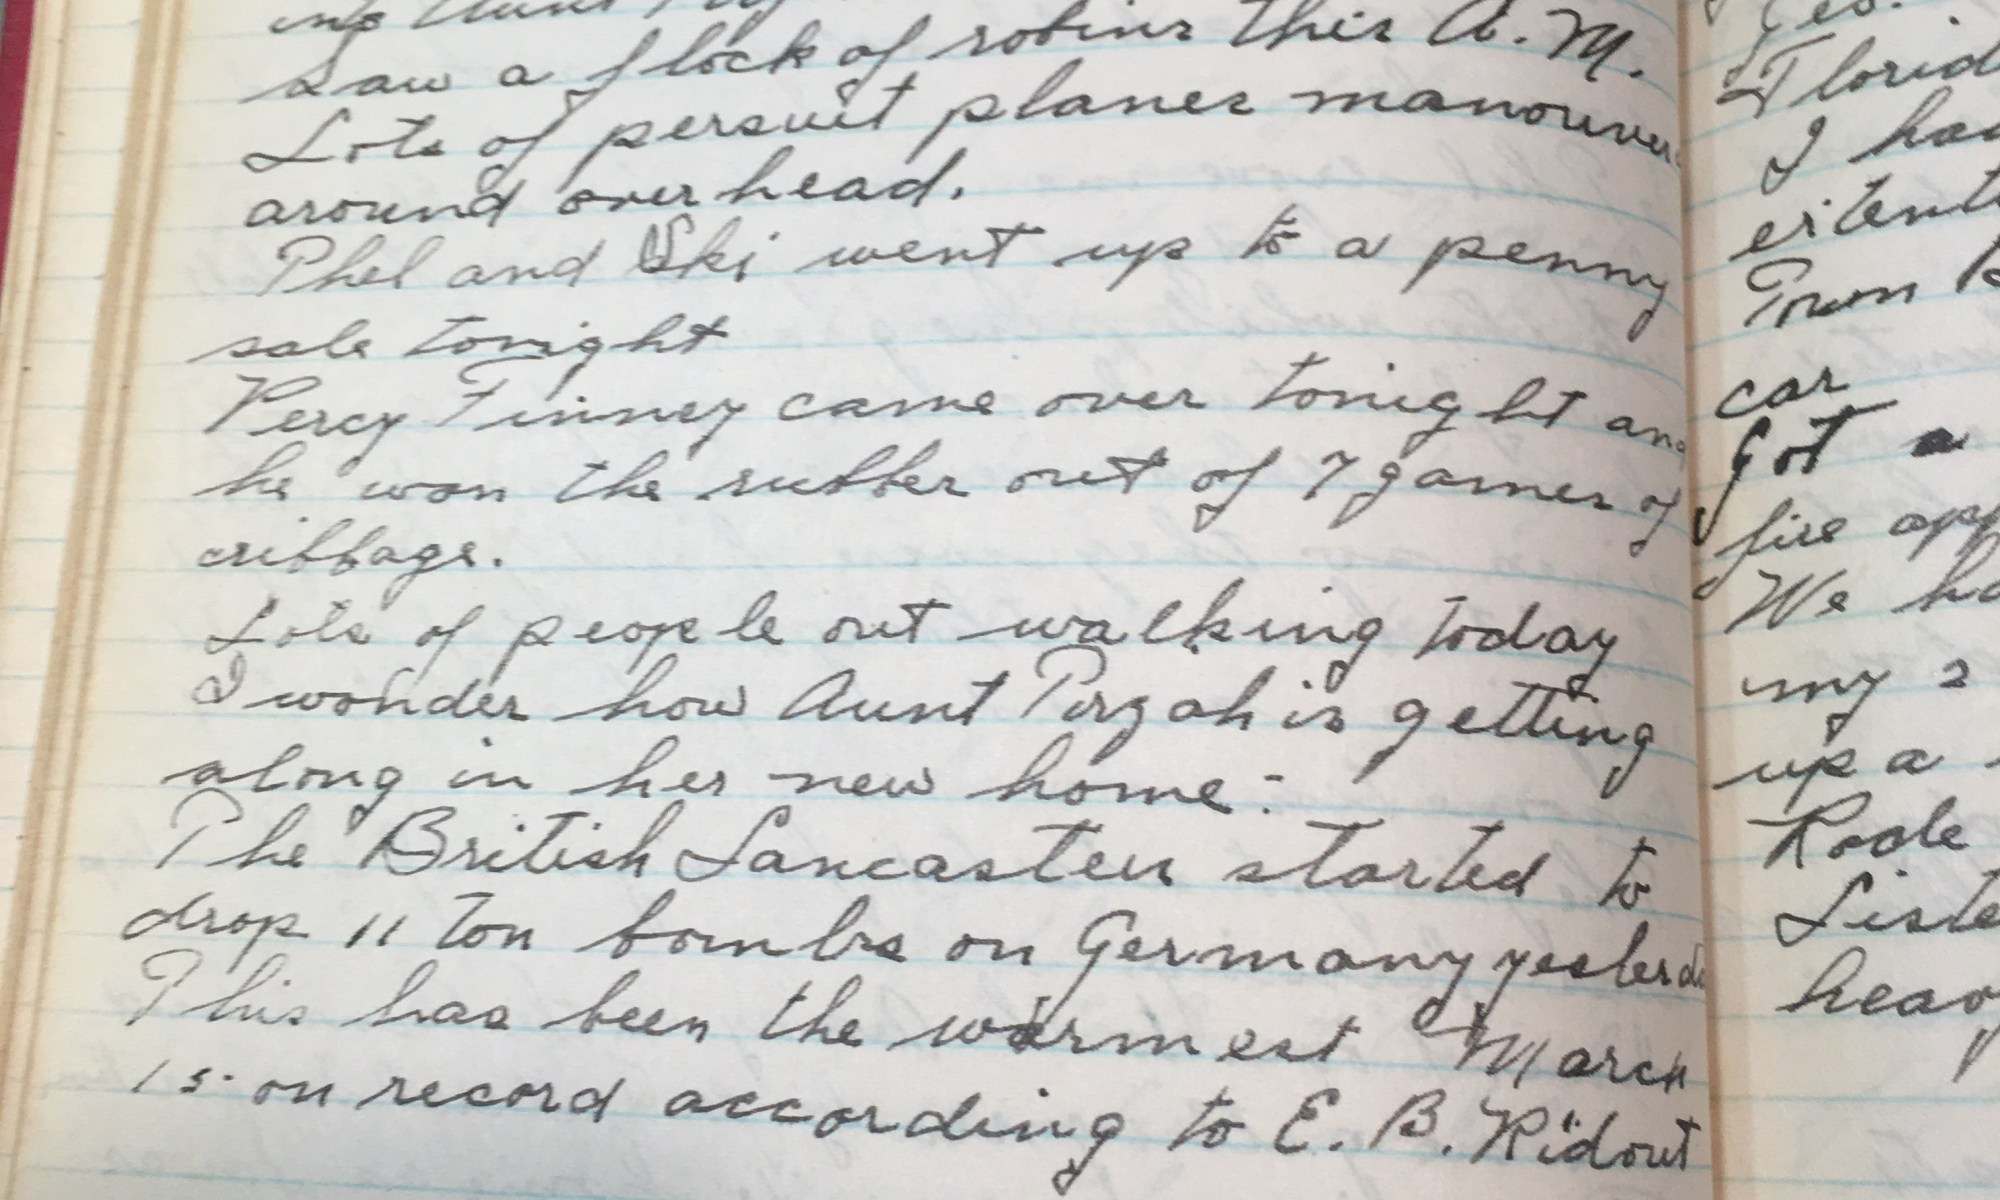 Saw a flock of robins this A.M.
Lots of persuit planes manouver
around overhead.
Phel and Ski went up to a penny
sale tonight
Percy Finney came over tonight and
he won the rubber out of 7 games of
cribbage.
Lots of people out walking today
I wonder how Aunt Pirzah is getting
along in her new home.
The British Lancasters started to
drop 11 ton bombs on Germany yesterda
This has been the warmest March
15. on record according to E. B. Ridout
I ha
Town
car
Got a
fire
We ha
my 2
up a
Rode